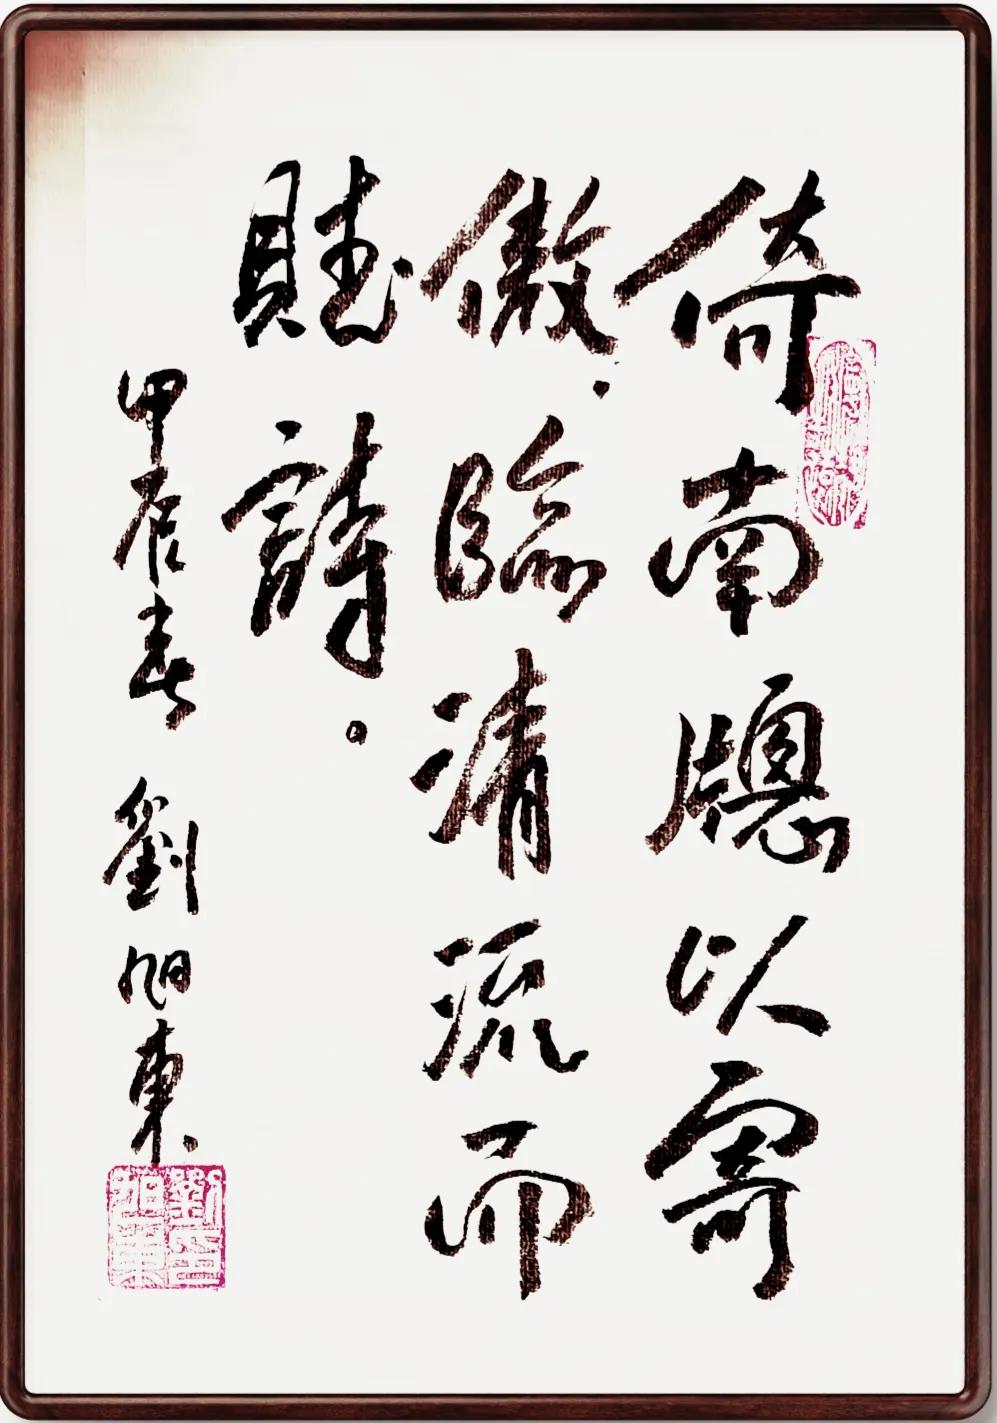 倚南牕以寄
傲。臨清流而
賦詩。
甲辰春 劉旭東